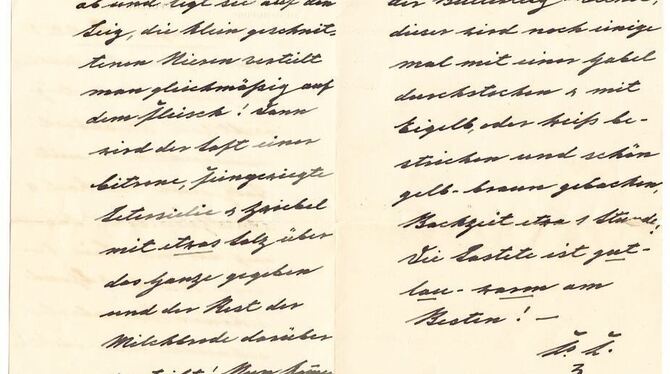 ab und legt sie auf den
Teig, die klein geschnit-
tenen Nieren verteilt
man gleichmäßig auf
dem Fleisch! Dann
wird der Saft einer
Citrone, feingewiegte
Petersielie & Zwiebel
mit etwas Salz über
das Ganze gegeben
und der Rest der
Milchbrode darüber
der
dieser wird noch einige
mal mit einer Gabel
durchstochen & mit
Eigelb, oder weiß be-
strichen und schön
gelb-braun gebacken,
Backzeit etwa 1 Stunde!
Die Pastete ist gut-
lau-warm am
Besten! —